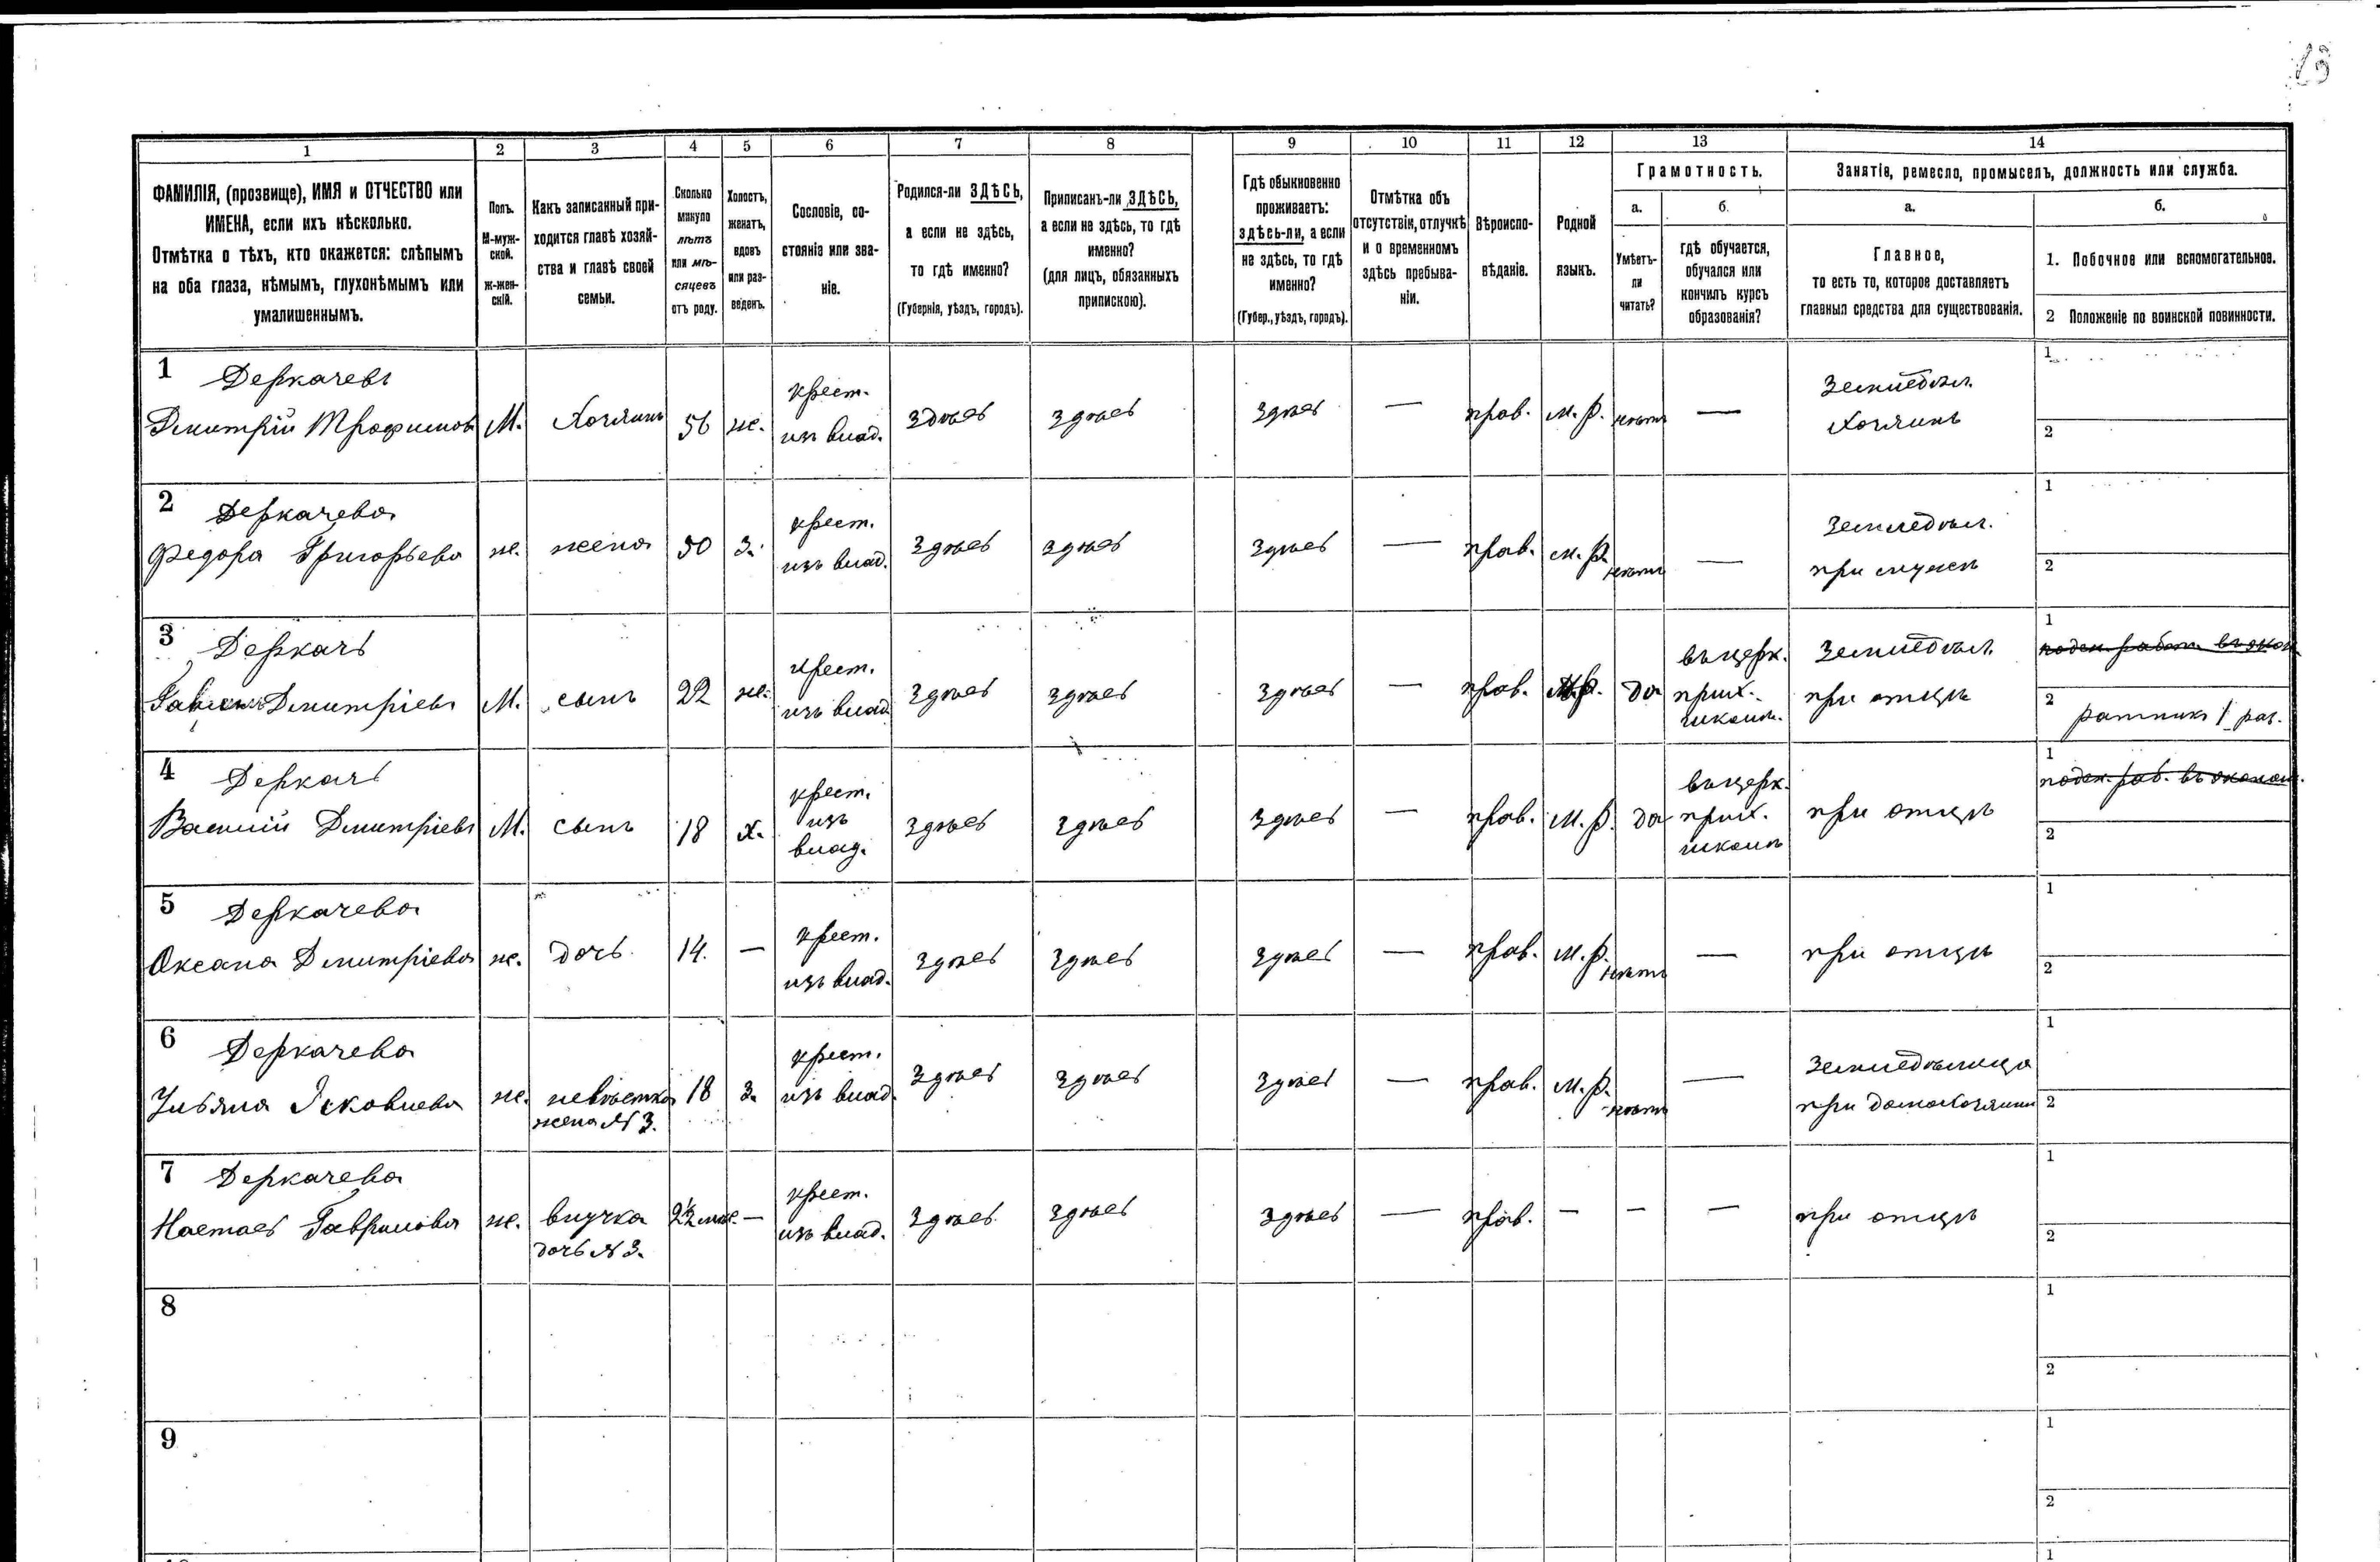 13
1 2 3 4 5 6 7 8 9 10 11 12 13 14
ФАМИЛІЯ, (прозвище), ИМЯ и ОТЧЕСТВО или
ИМЕНА, если ихъ нѣсколько.
Отмѣтка о тѣхъ, кто окажется: слѣпымъ
на оба глаза, нѣмымъ, глухонѣмымъ или
умалишеннымъ.
Полъ.
М-муж-
ской.
ж-жен-
скій.
Какъ записанный при-
ходится главѣ хозяй-
ства и главѣ своей
семьи.
Сколько
минуло
лѣтъ
или мѣ-
сяцевъ
отъ роду.
Холостъ,
женатъ,
вдовъ
или раз-
веденъ.
Сословіе, со-
стояніе или зва-
ніе.
Родился-ли ЗДѢСЬ,
а если не здѣсь,
то гдѣ именно?
(Губернія, уѣздъ, городъ).
Приписанъ-ли ЗДѢСЬ,
а если не здѣсь, то гдѣ
именно?
(для лицъ, обязанныхъ
припискою).
Гдѣ обыкновенно
проживаетъ:
здѣсь-ли, а если
не здѣсь, то гдѣ
именно?
(Губер., уѣздъ, городъ).
Отмѣтка объ
отсутствіи, отлучкѣ
и о временномъ
здѣсь пребыва-
ніи.
Вѣроиспо-
вѣданіе.
Родной
языкъ.
Грамотность.
а.
Умѣетъ-
ли
читать?
б.
гдѣ обучается,
обучался или
кончилъ курсъ
образованія?
Занятіе, ремесло, промыселъ, должность или служба.
а.
Главное,
то есть то, которое доставляетъ
главныя средства для существованія.
б.
1. Побочное или вспомогательное.
2 Положеніе по воинской повинности.
1 Деркачевъ
Дмитрій Трофимовъ М. Хозяинъ 56 ж. крест. изъ влад. здѣсь здѣсь здѣсь — прав. м. р. нѣтъ — Земледѣл. Хозяинъ 1 2
2 Деркачева
Федора Григорьева ж. жена 50 з. крест. изъ влад. здѣсь здѣсь здѣсь — прав. м. р. нѣтъ — Земледѣл. при мужѣ 1 2
3 Деркачъ
Дмитріевъ М. сынъ 22 ж. крест. изъ влад. здѣсь здѣсь здѣсь — прав. м. р. да въ церк. прих. школѣ. Земледѣл. при отцѣ 1 поден. работ. въ экон. 2 ратникъ 1 раз.
4 Деркачъ
Василій Дмитріевъ М. сынъ 18 х. крест. изъ влад. здѣсь здѣсь здѣсь — прав. м. р. да въ церк. прих. школѣ при отцѣ 1 поден. раб. въ эконом. 2
5 Деркачева
Оксана Дмитріева ж. дочь 14. — крест. изъ влад. здѣсь здѣсь здѣсь — прав. м. р. нѣтъ — при отцѣ 1 2
6 Деркачева
Ульяна Яковлева ж. невѣстка жена № 3. 18 з. крест. изъ влад. здѣсь здѣсь здѣсь — прав. м. р. нѣтъ — Земледѣлица при домохозяинѣ 1 2
7 Деркачева
Настась Гаврилова ж. внучка дочь № 3. 2½ мѣс. — крест. изъ влад. здѣсь здѣсь здѣсь — прав. — — — при отцѣ 1 2
8 1 2
9 1 2
1